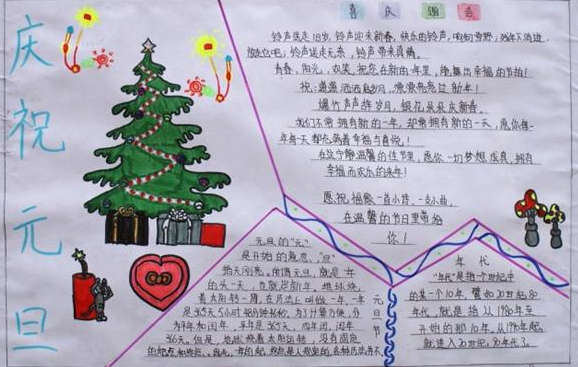 庆祝元旦
喜庆 
铃声送走旧岁,铃声迎来新春,快乐的铃声,响彻
铃声送走 ,铃声带来真情。
春,阳光,欢笑,祝你在新的一年里,
祝:潇潇洒洒 岁月, 新年!
爆竹声声辞岁月,银花朵朵庆新春。
我们不常拥有新的一年,却常拥有新的一天,愿你每一
年每一天都充 着幸福与喜悦!
在这宁静 的佳节里,愿你一切梦想成真,拥有
幸福而欢乐的来年!
愿 一首小诗,一支小曲,
在温馨的节日里带给
你!
元旦的“元”
是开始的意思,“旦”
指天刚亮,所谓元旦,就是一年
的头一天,也就是新年,地球绕
着太阳转一周,在历法上叫做一年,一年
是365天5小时48分 秒,为了计算方便,分
为平年和闰年,平年是365天,四年一闰,闰年
366天。但是,地球绕着太阳运转,没有固定
的起点和终点,因此,一年的起 是人规定的,各种历法
元旦节
年代
“年代”是指一个世纪中
的某一个10年,譬如20世纪80
年代,就是指从1980年至
开始的那10年。从1990年起,
就进入20世纪90年代了。